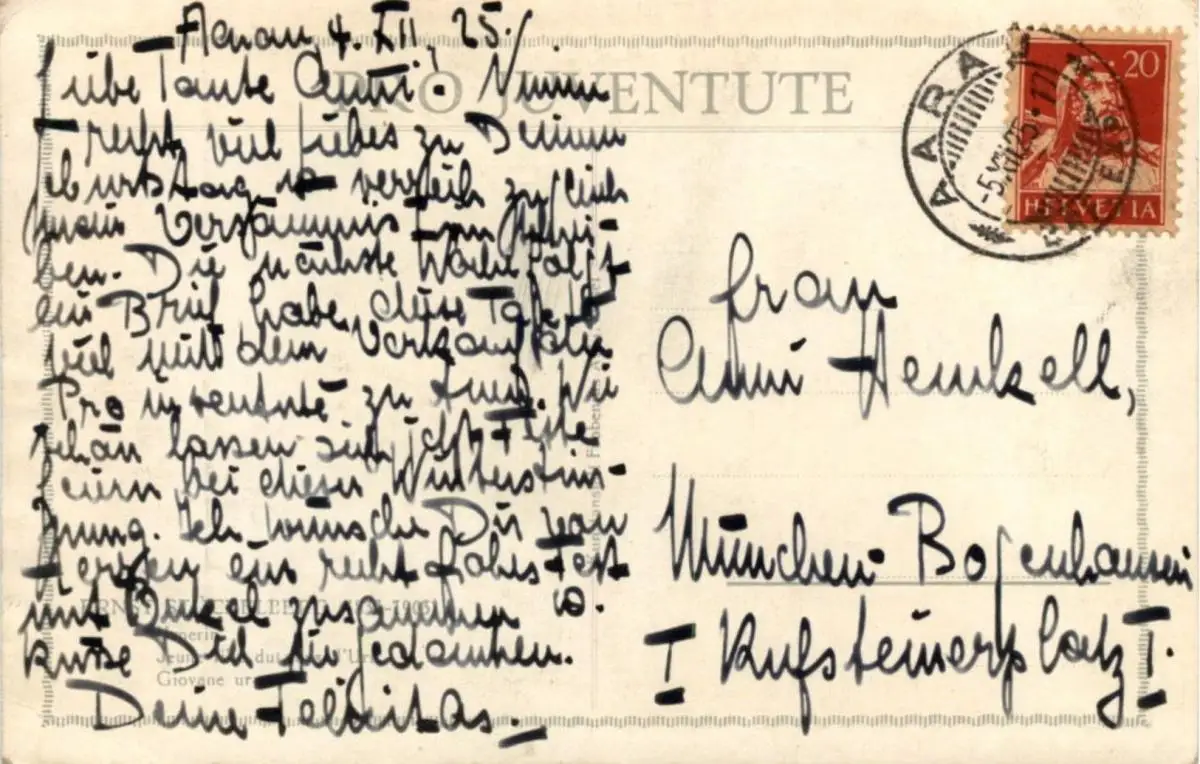 Aarau, 4. XII. 25.
PRO JUVENTUTE
Liebe Tante Anni. Nimm
recht viel Liebes zu Deinem
Geburtstag u. verzeih zugleich
mein Versäumnis im Schrei-
ben. Die nächste Woche folgt
ein Brief, habe diese Tage so
viel mit dem Verkauf der
Pro Juventute zu tun. Wie
schön lassen sich jetzt Feste
feiern bei dieser Winterstim-
mung. Ich wünsche Dir von
Herzen ein recht frohes Fest
mit Onkel zusammen u.
küsse Dich
Deine Felicitas.
Giovane
AARAU
-5.XII.25
20
HELVETIA
Frau
Anni Henkell,
München-Bogenhausen
I Kufsteinerplatz I.